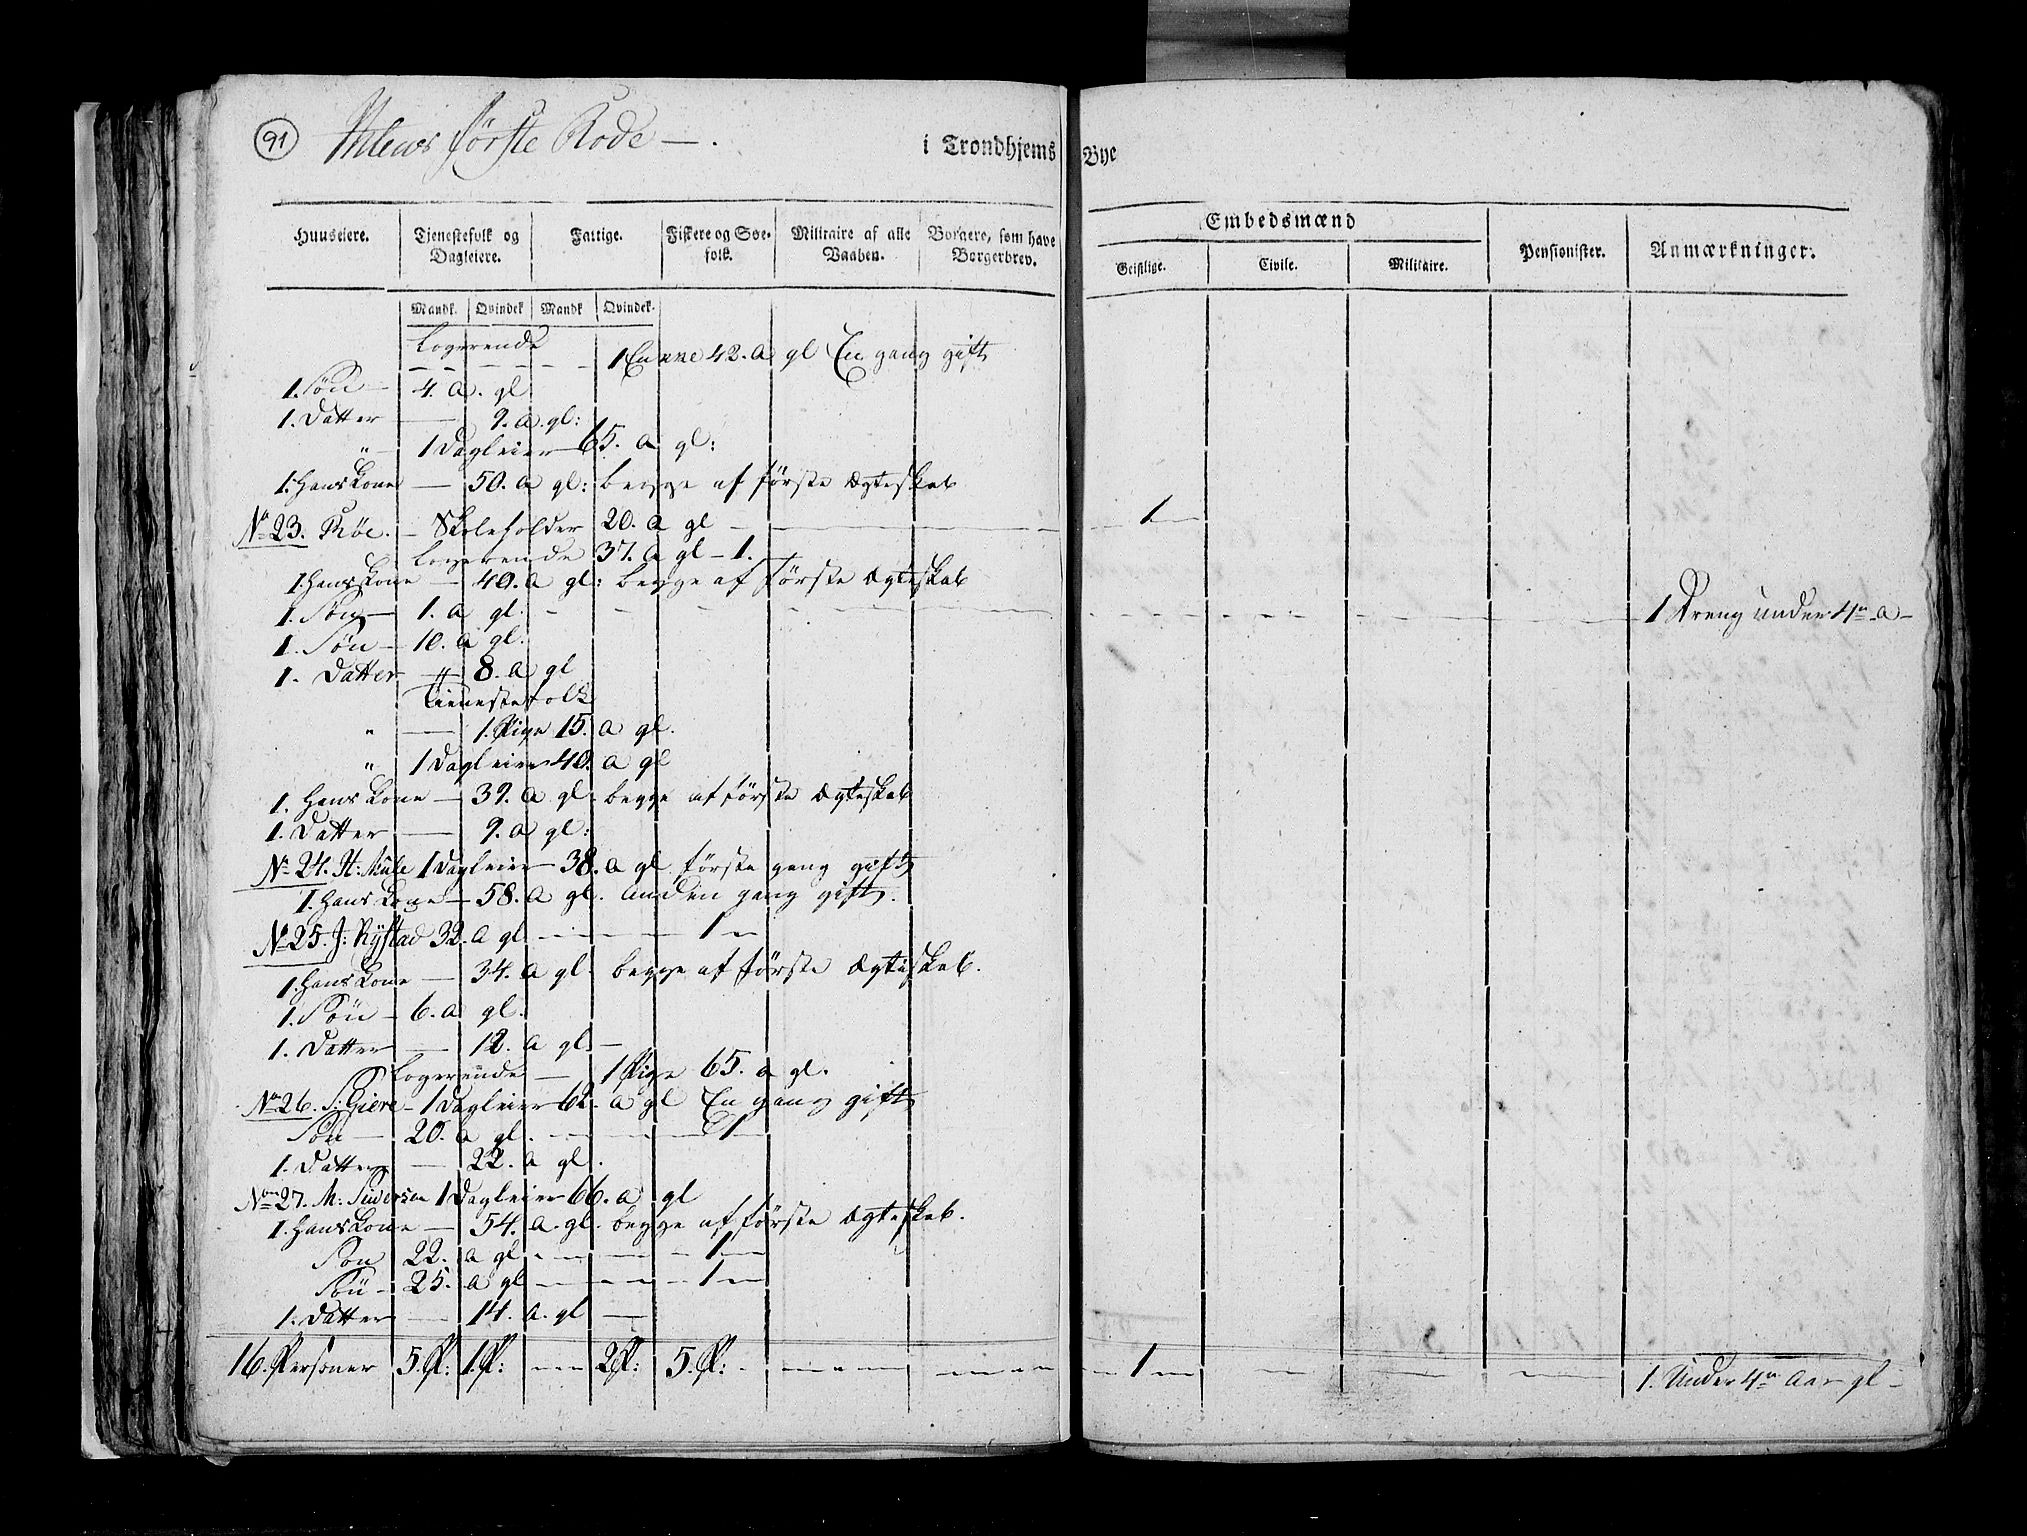 91 Ihlens første Rode — . i Trondhjems Bye
Huuseiere. Tjenestefolk og Dagleiere. Fattige. Fiskere og Søefolk. Militaire af alle Vaaben. Borgere, som have Borgerbrev. Embedsmænd Pensionister. Anmærkninger.
Geistlige. Civile. Militaire.
Mandk. Qvindek Mandk Qvindek.
Logerende
1 Enke 42. a gl En gang gift
1. Søn — 4. a. gl
1. Datter — 9. a. gl:
" — 1 Dagleier 65. a gl:
1. Hans Kone — 50. a gl: begge af første Ægteskab
No 23. Røe. — Skoleholder 20. a gl — 1 —
Logerende 37. a gl — 1.
1. Hans Kone — 40. a gl: begge af første Ægteskab
1. Søn — 1. a gl. — 1 Dreng under 4re a —
1. Søn — 10. a gl.
1. Datter — " 8. a gl
Tienestefolk
" — 1. Pige 15. a gl.
" 1 Dagleier 40. a gl
1. Hans Kone — 39. a gl. begge af første Ægteskab
1. Datter — 9. a gl:
No 24. H: Mule 1 Dagleier 38. a gl. første gang gift
1. Hans Kone — 58. a gl. anden gang gift.
No 25. J: Rÿstad 32. a gl — 1 —
1. Hans Kone — 34. a gl. begge af første Ægteskab.
1. Søn — 6. a gl.
1. Datter — 12. a gl —
Logerende — 1 Pige 65. a gl.
No 26. S: Giere — 1 Dagleier 62. a gl En gang gift
Søn — 20. a gl. — 1 —
1. Datter — 22. a gl.
No 27. M: Siversen 1 Dagleier 66. a gl
1. Hans Kone — 54. a. gl. begge af første Ægteskab.
Søn 22. a gl — 1 —
Søn — 25. a gl — 1 —
1. Datter — 14. a. gl —
16. Personer 5. P: 1 P: — 2 P: 5. P: — 1 — 1. Under 4re Aar gl —